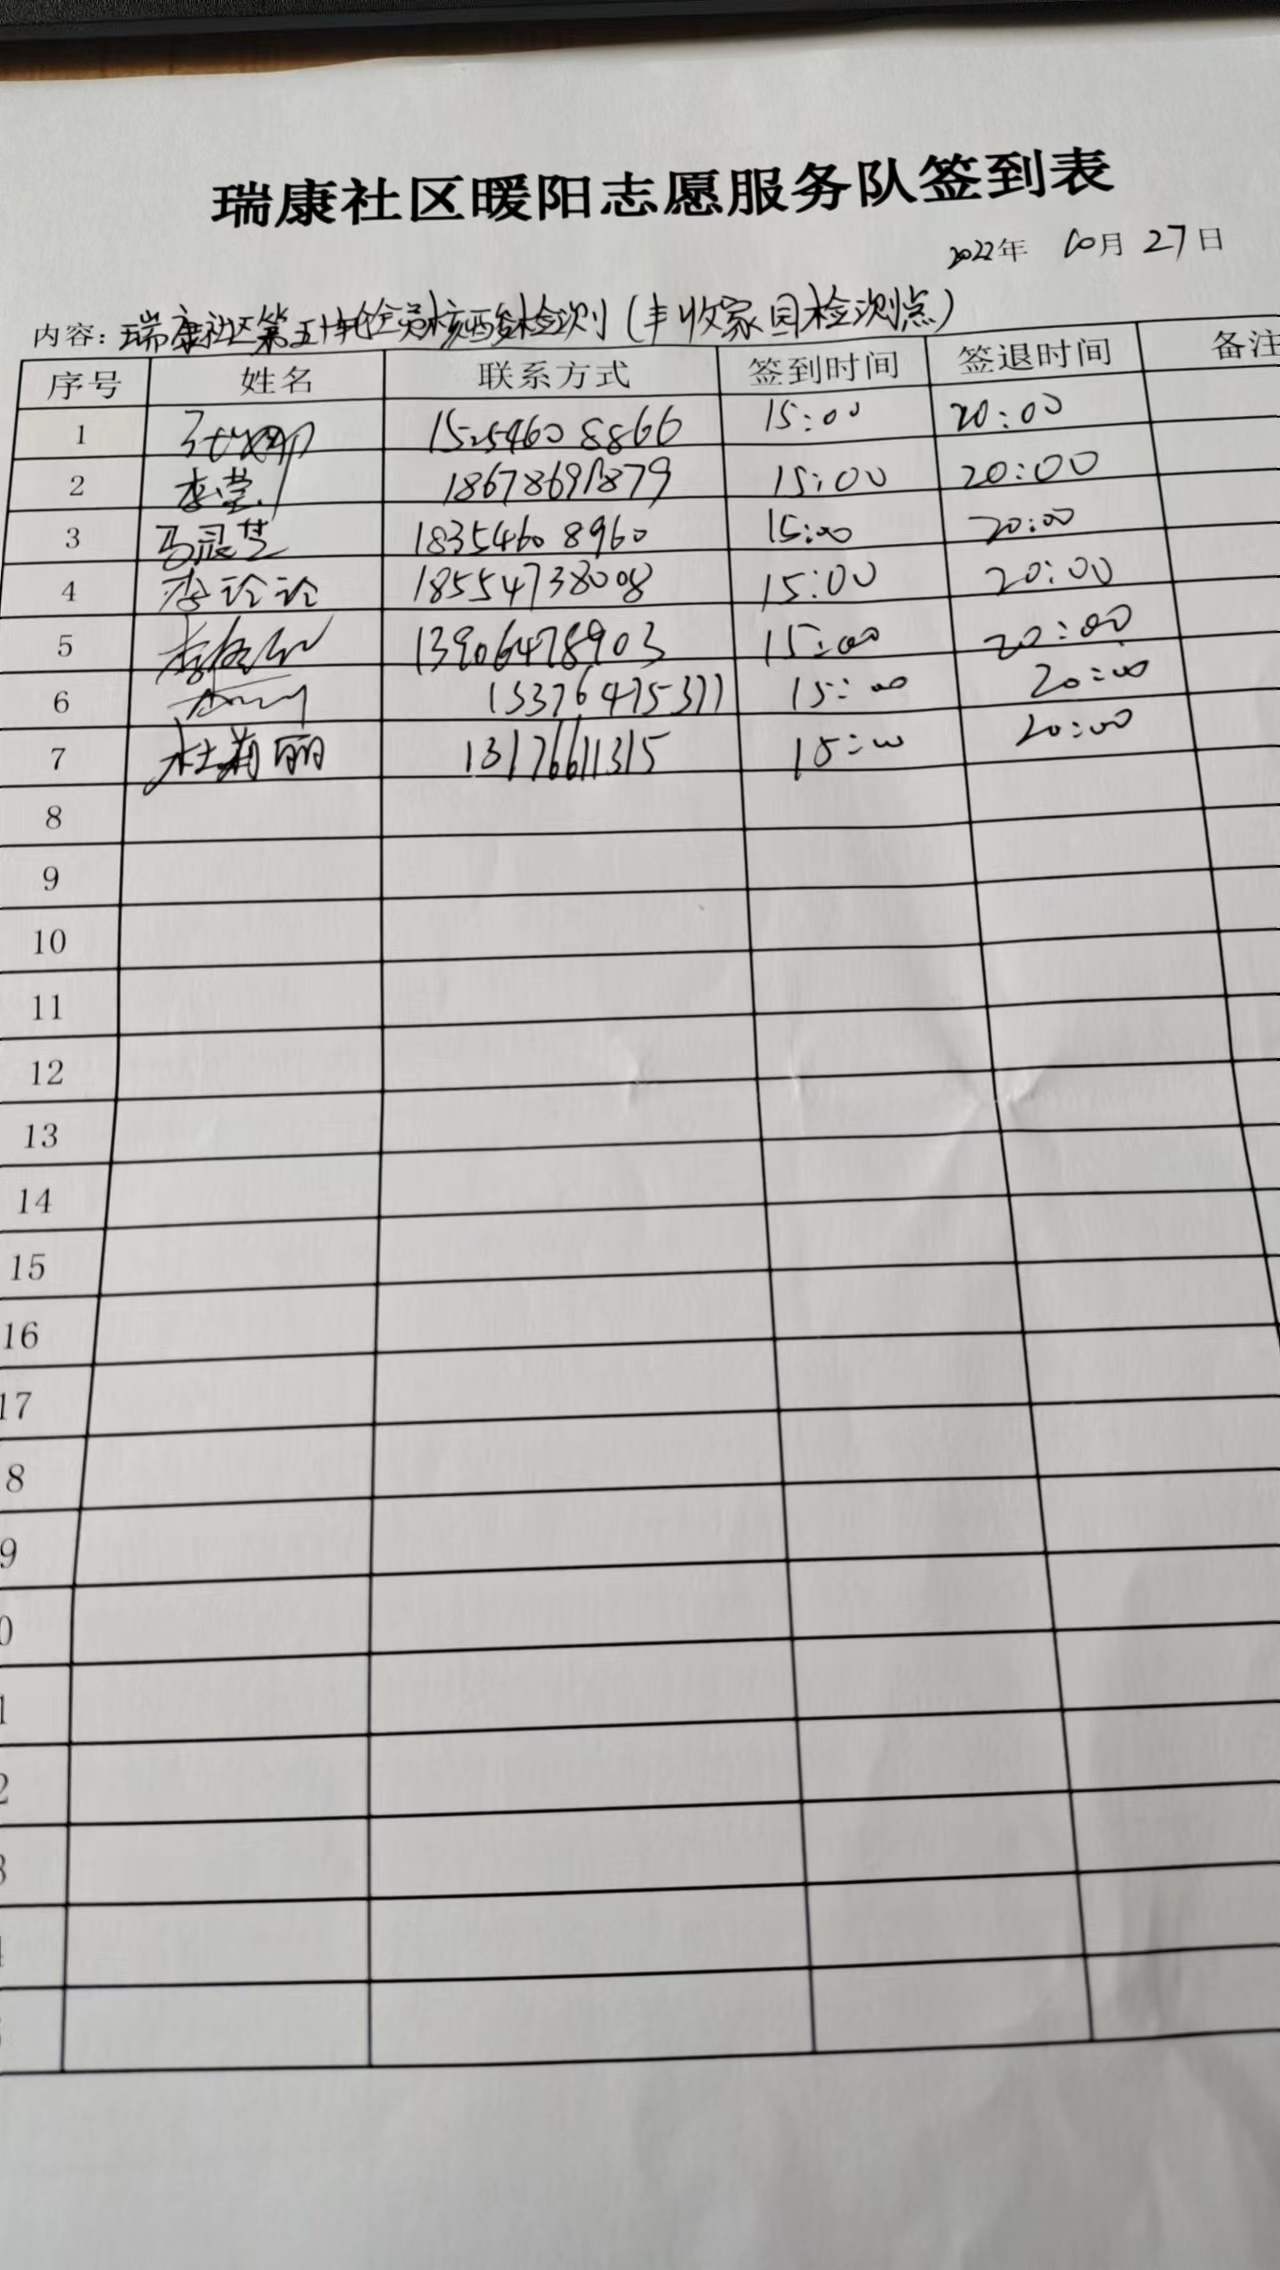 瑞康社区暖阳志愿服务队签到表
2022年 10月 27日
内容：瑞康社区第五十轮全员核酸检测（丰收家园检测点）
序号 姓名 联系方式 签到时间 签退时间 备注
1 15254608866 15:00 20:00
2 李莹 18678691879 15:00 20:00
3 马灵芝 18354608960 15:00 20:00
4 李论论 18554738008 15:00 20:00
5 13906478903 15:00 20:00
6 13376475377 15:00 20:00
7 杜莉丽 13176611315 15:00 20:00
8
9
10
11
12
13
14
15
16
17
8
9
0
1
2
3
4